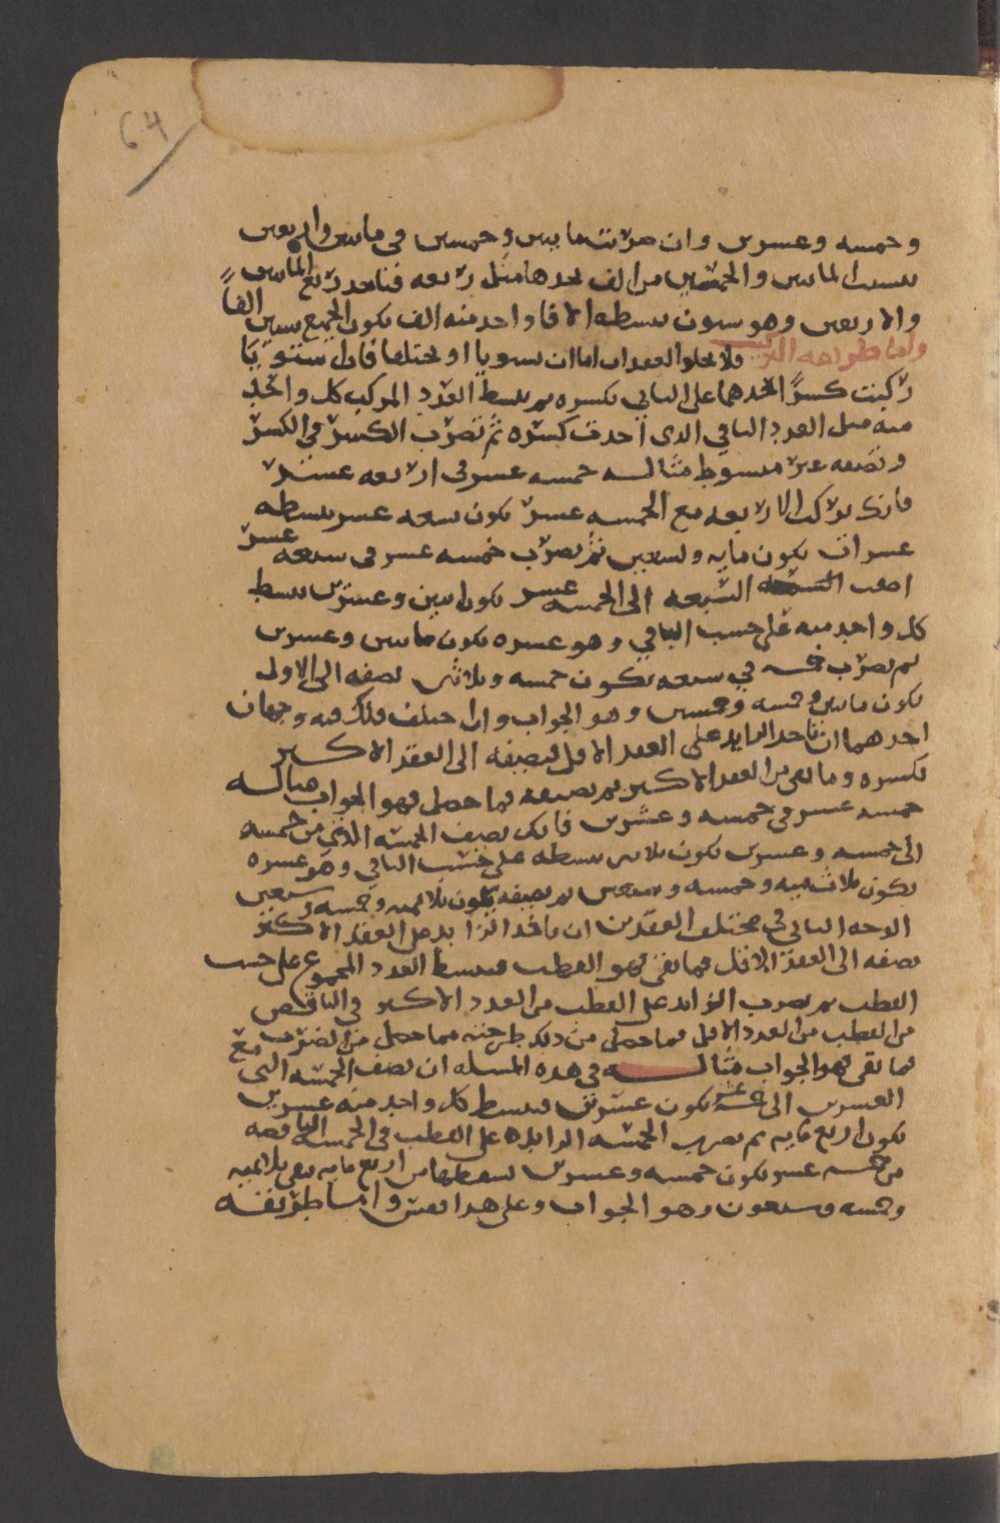 64
وخمسه وعشرين وان ضربت مايتين وخمسين في مايتين واربعين
نسبت المايتين والخمسين من الف تجدها مثل ربعه فتاخذ ربع المايتين
والاربعين وهو ستون تبسطه الافا واحد منه الف يكون الجميع ستين الفاً
واما طريقه التركيب فلا يخلو العقدان اما ان يستويا او يختلفا فان استويا
ركبت كسر احدهما على الثاني بكسره ثم تبسط العدد المركب كل واحد
منه مثل العدد الباقي الذي اخذت كسره ثم تضرب الكسر في الكسر
وتضعه غير مبسوط مثاله خمسه عشر في اربعه عشر
فانك تركب الاربعه مع الخمسه عشر يكون تسعه عشر تبسطه
عشرات يكون مايه وتسعين ثم تضرب خمسه عشر في سبعه عشر
اضف السبعه الى الخمسه عشر يكون اثنين وعشرين تبسط
كل واحد منه على حسب الباقي وهو عشره يكون مايتين وعشرين
ثم تضرب خمسه في سبعه يكون خمسه وثلاثين تضفه الى الاول
يكون مايتين وخمسه وخمسين وهو الجواب وان اختلف فلك فيه وجهان
احدهما ان تاخذ الزايد على العقد الاقل فتضيفه الى العقد الاكبر
بكسره وما بقي من العقد الاكبر ثم تضيفه فما حصل فهو الجواب مثاله
خمسه عشر في خمسه وعشرين فانك تضيف الخمسه الذي من خمسه
الى خمسه وعشرين يكون ثلاثين تبسطه على حسب الباقي وهو عشره
يكون ثلاث ميه وخمسه وسبعين ثم تضيفه يكون ثلاثميه وخمسه وسبعين
الوجه الثاني في مختلف العقدين ان تاخذ الزايد على العقد الاكبر
تضفه الى العقد الاقل فما بقي فهو القطب فتبسط العدد المجموع على حسب
القطب ثم تضرب الزايد على القطب من العدد الاكبر في الناقص
من القطب من العدد الاقل فما حصل من ذلك طرحته مما حصل من الضرب
فما بقي فهو الجواب مثاله في هذه المساله ان تضف الخمسه التي مع
العشرين الى خمسه عشر يكون عشرين فتبسط كل واحد منه عشرين
يكون اربع مايه ثم تضرب الخمسه الزايده على القطب في الخمسه الناقصه
من خمسه عشر يكون خمسه وعشرين تسقطها من اربع مايه يبقى ثلاثميه
وخمسه وسبعون وهو الجواب وعلى هذا فقس واما طريقه